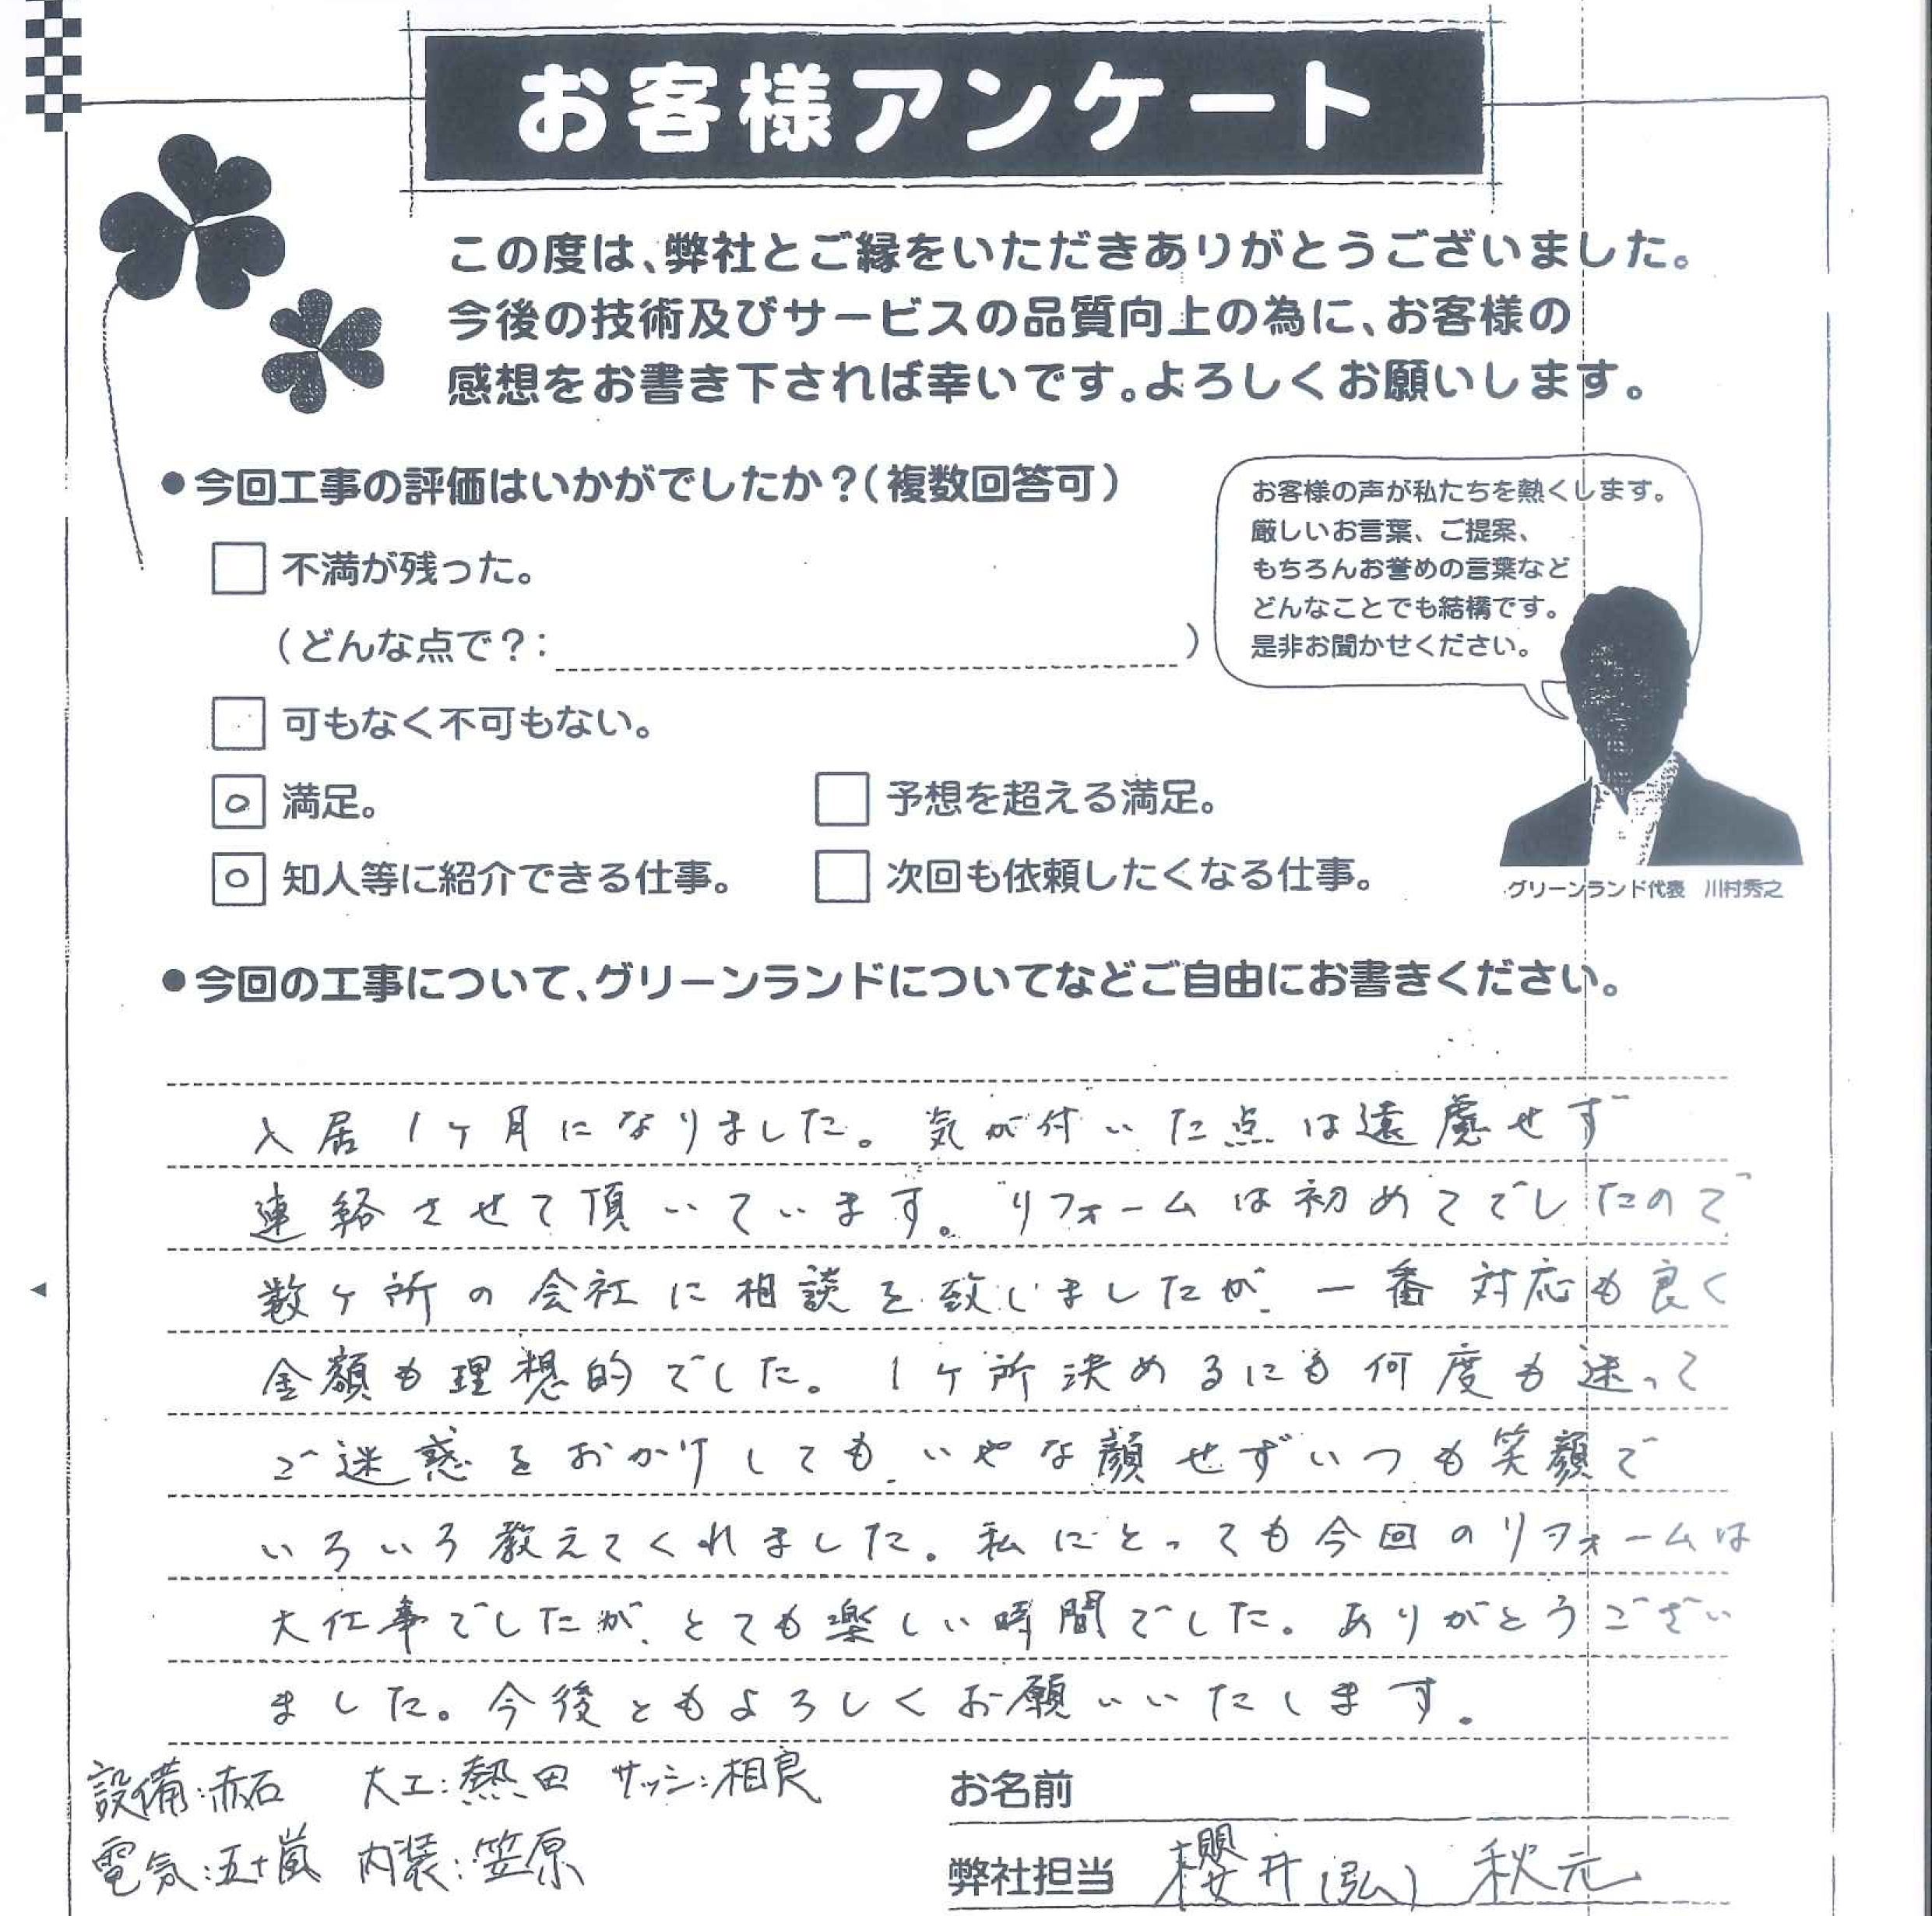 お客様アンケート
この度は、弊社とご縁をいただきありがとうございました。
今後の技術及びサービスの品質向上の為に、お客様の
感想をお書き下されば幸いです。よろしくお願いします。
●今回工事の評価はいかがでしたか？（複数回答可）
不満が残った。
（どんな点で？：　）
可もなく不可もない。
○ 満足。
予想を超える満足。
○ 知人等に紹介できる仕事。
次回も依頼したくなる仕事。
お客様の声が私たちを熱くします。
厳しいお言葉、ご提案、
もちろんお誉めの言葉など
どんなことでも結構です。
是非お聞かせください。
グリーンランド代表　川村秀之
●今回の工事について、グリーンランドについてなどご自由にお書きください。
入居1ヶ月になりました。気が付いた点は遠慮せず
連絡させて頂いています。リフォームは初めてでしたので
数ヶ所の会社に相談を致しましたが、一番対応も良く
金額も理想的でした。1ヶ所決めるにも何度も迷って
ご迷惑をおかけしても、いやな顔せずいつも笑顔で
いろいろ教えてくれました。私にとっても今回のリフォームは
大仕事でしたが、とても楽しい時間でした。ありがとうござい
ました。今後ともよろしくお願いいたします。
設備：赤石　大工：熱田　サッシ：相良
電気：五十嵐　内装：笠原
お名前
弊社担当　櫻井（弘）　秋元